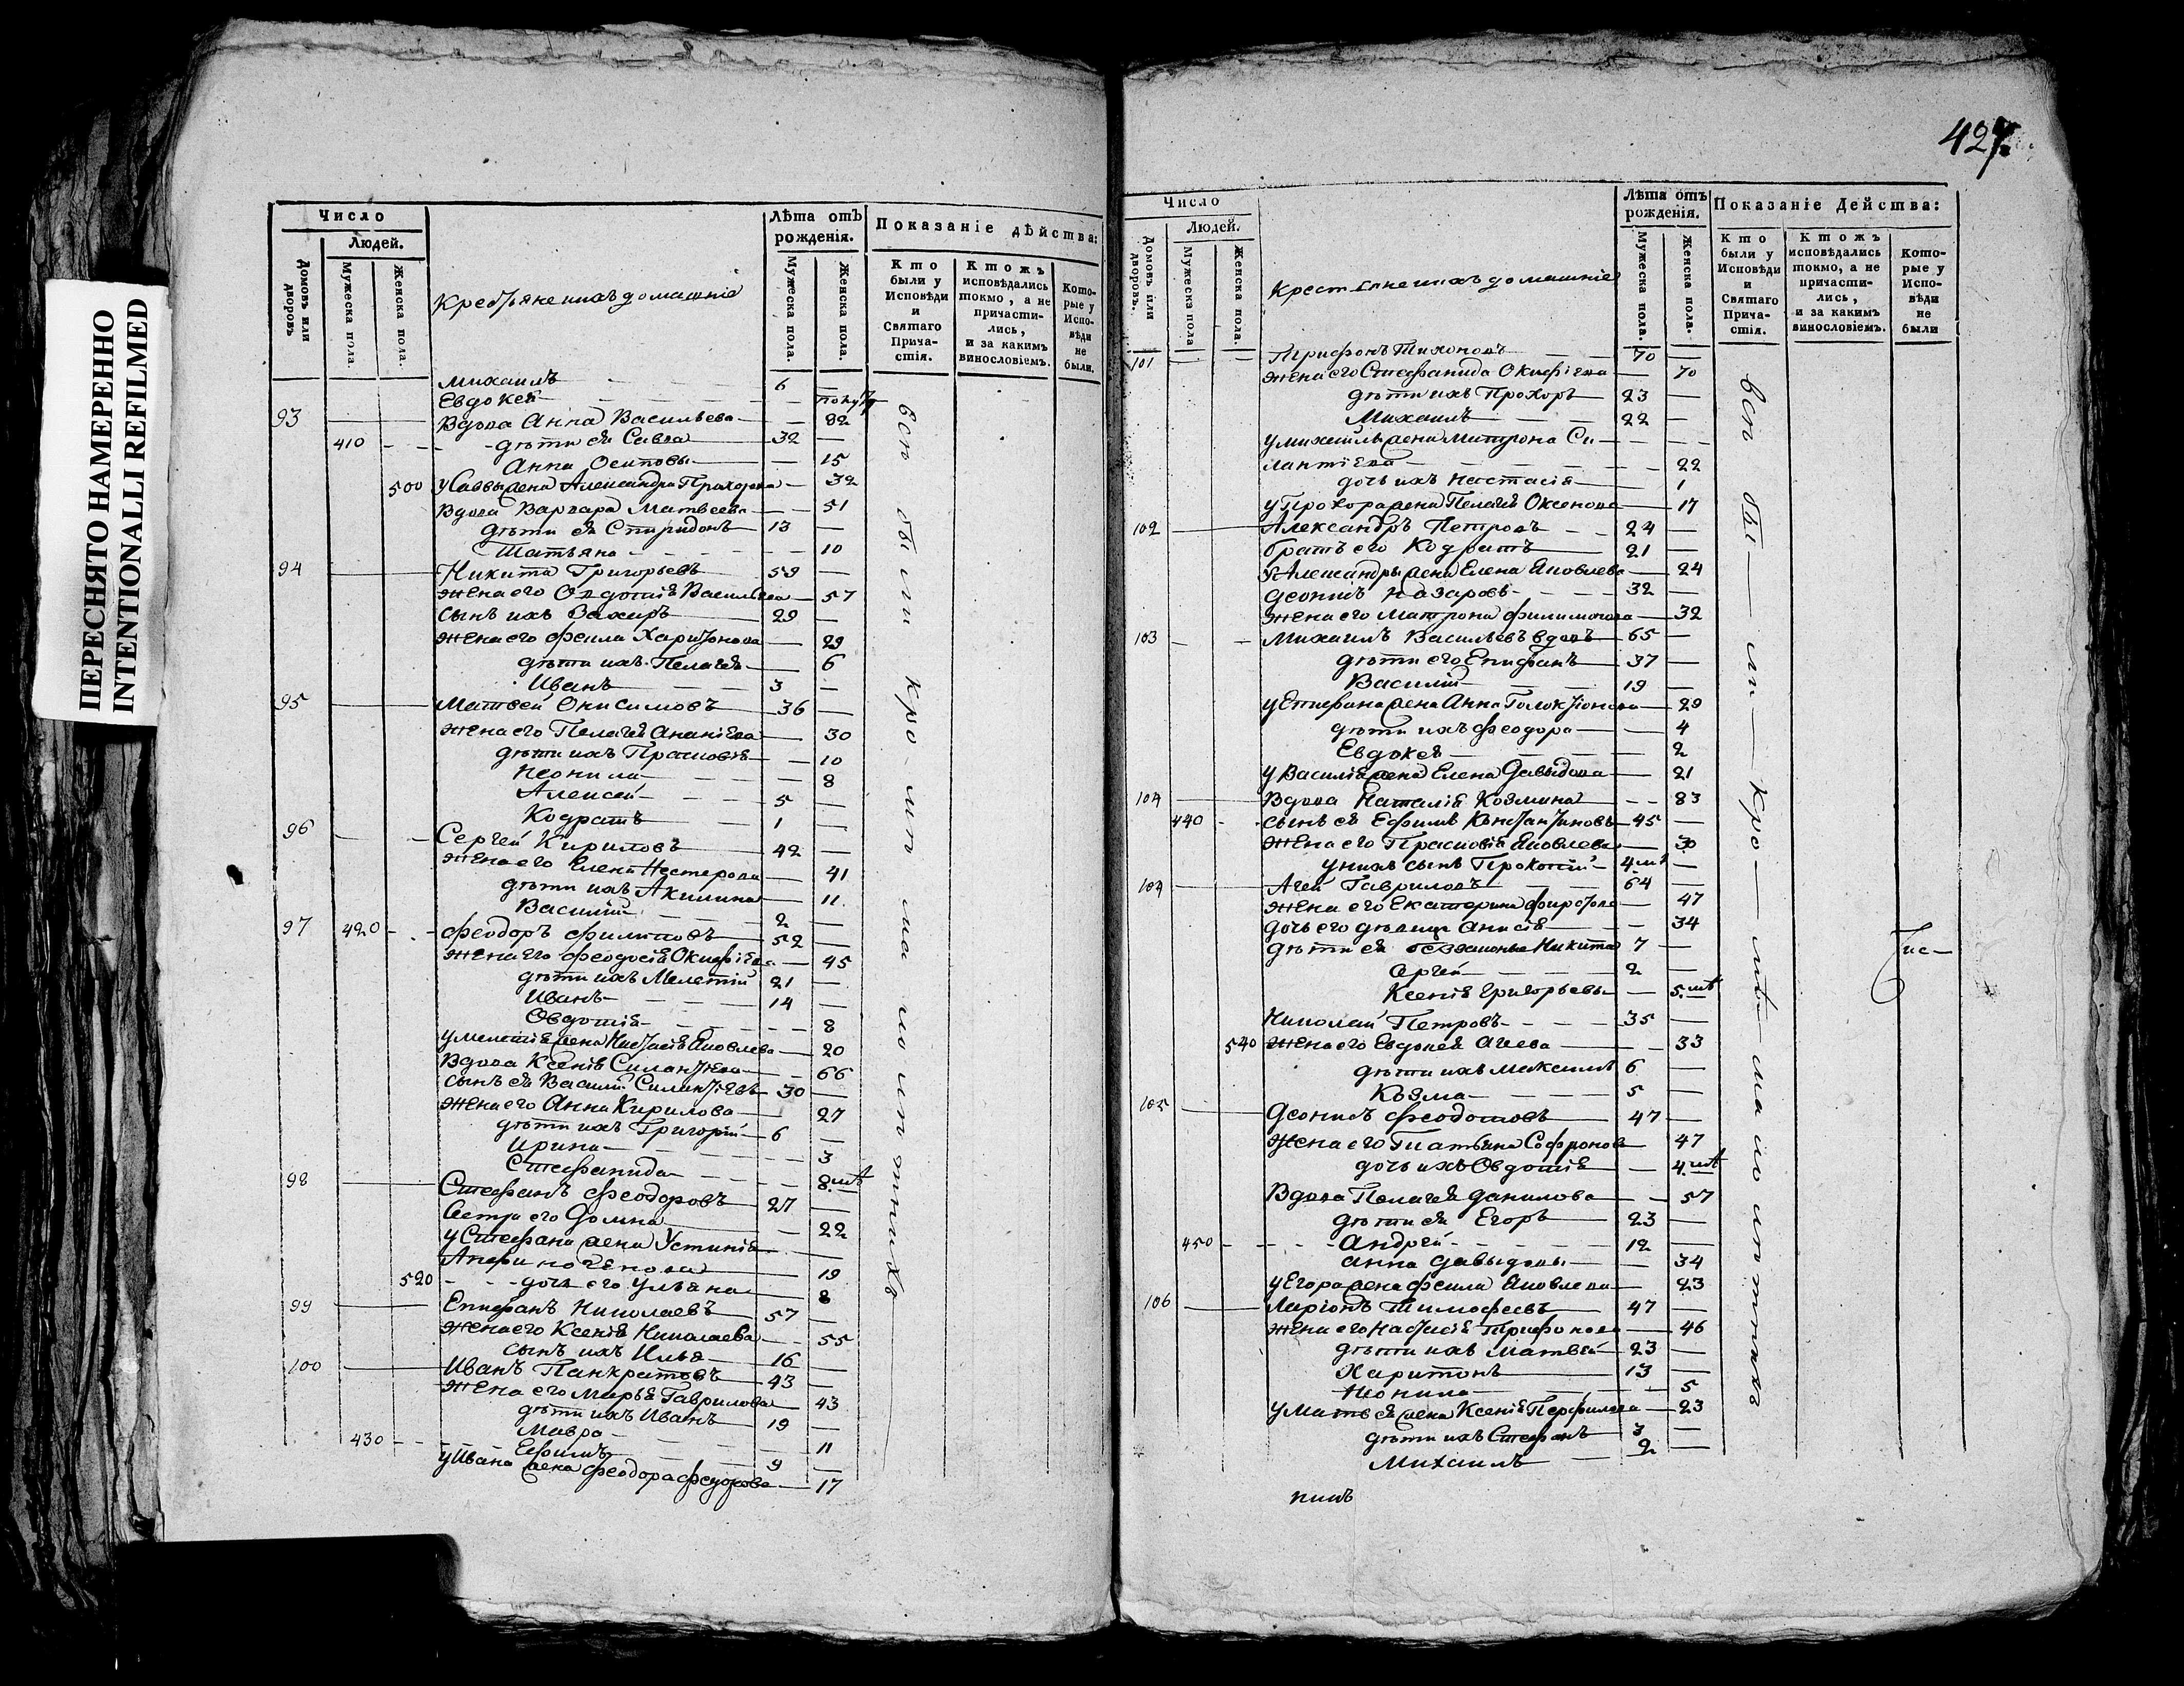 ПЕРЕСНЯТО НАМЕРЕННО
INTENTIONALLI REFILMED
Число
Людей.
Домовъ или дворовъ
Мужеска пола.
Женска пола.
Крестьяне ихъ домашніе
Лѣта отъ рожденія.
Мужеска пола.
Женска пола.
Показаніе дѣйства:
Кто были у Исповѣди и Святаго Причастія.
Ктожъ исповѣдались токмо, а не причастились, и за какимъ винословіемъ.
Которые у Исповѣди не были.
Михаилъ 6
Евдокея полугод
93 Вдова Анна Васильева 82
410 дѣти ея Савва 32
Анна Осиповы 15
500 у Саввы жена Александра Прохорова 32
Вдова Варвара Матвеева 51
дѣти ея Спиридонъ 13
Татьяна 10
94 Никита Григорьевъ 59
жена его Овдотія Васильева 57
сынъ ихъ Захаръ 29
жена его Фекла Харитонова 29
дѣти ихъ Пелагея 6
Иванъ 3
95 Матвей Онисимовъ 36
жена его Пелагея Ананіева 30
дѣти ихъ Прасковія 10
Неонила 8
Алексей 5
Кодратъ 1
96 Сергей Кириловъ 42
жена его Елена Нестерова 41
дѣти ихъ Акилина 11
Василій 2
97 420 Феодоръ Филиповъ 52
жена его Феодосія Окифіева 45
дѣти ихъ Мелетій 21
Иванъ 14
Овдотія 8
у Мелетія жена Настасія Яковлева 20
Вдова Ксенія Силантіева 66
сынъ ея Василій Силантіевъ 30
жена его Анна Кирилова 27
дѣти ихъ Григорій 6
Ирина 3
Стефанида 8 мѣ
98 Стефанъ Феодоровъ 27
Сестра его Домна 22
у Стефана жена Устинія
Анфиногенова 19
520 дочь его Ульяна 8
99 Епифанъ Николаевъ 57
жена его Ксенія Николаева 55
сынъ ихъ Илья 16
100 Иванъ Панкратовъ 43
жена его Марья Гаврилова 43
дѣти ихъ Иванъ 19
Мавра 11
430 Ефимъ 9
у Ивана жена Феодора Федорова 17
всѣ были кромѣ малолѣтнихъ
427
Число
Людей.
Домовъ или дворовъ.
Мужеска пола
Женска пола.
Крестьяне ихъ домашніе
Лѣта отъ рожденія.
Мужеска пола.
Женска пола.
Показаніе Действа:
Кто были у Исповѣди и Святаго Причастія.
Ктожъ исповѣдались токмо, а не причастились, и за какимъ винословіемъ.
Которые у Исповѣди не были
101 Трифонъ Тихоновъ 70
жена его Стефанида Окифіева 70
дѣти ихъ Прохоръ 23
Михаилъ 22
у Михаилы жена Матрона Си-
лантіева 22
дочь ихъ Настасія 1
у Прохора жена Пелагея Оксенова 17
102 Александръ Петровъ 24
братъ его Кодратъ 21
у Александры жена Елена Яковлева 24
Деонисъ Назаровъ 32
жена его Матрона Филимонова 32
103 Михаилъ Васильевъ вдовъ 65
дѣти его Епифанъ 37
Василій 19
у Епифана жена Анна 29
дѣти ихъ Феодора 4
Евдокея 2
у Василія жена Елена Давыдова 21
104 Вдова Наталія Козмина 83
440 сынъ ея Ефимъ Константиновъ 45
жена его Прасковія Яковлева 30
у нихъ сынъ Прокопій 4 мѣ
104 Агей Гавриловъ 64
жена его Екатерина Фирсова 47
дочь его дѣвица Анисія 34
дѣти ея беззаконные Никита 7
Сергей 2
Ксенія Григорьевы 5 мѣ
Николай Петровъ 35
540 жена его Евдокея Агеева 33
дѣти ихъ Максимъ 6
Кузма 5
105 Деонисъ Феодотовъ 47
жена его Татьяна Софронова 47
дочь ихъ Овдотія 4 мѣ
Вдова Пелагея Данилова 57
дѣти ея Егоръ 23
450 Андрей 12
Анна Давыдовы 34
у Егора жена Фекла Яковлева 23
106 Ларіонъ Тимофеевъ 47
жена его Настасія Трифонова 46
дѣти ихъ Матвей 23
Харитонъ 13
Неонила 5
у Матвея жена Ксенія Перфильева 23
дѣти ихъ Стефанъ 3
Михаилъ 2
всѣ были кромѣ малолѣтнихъ